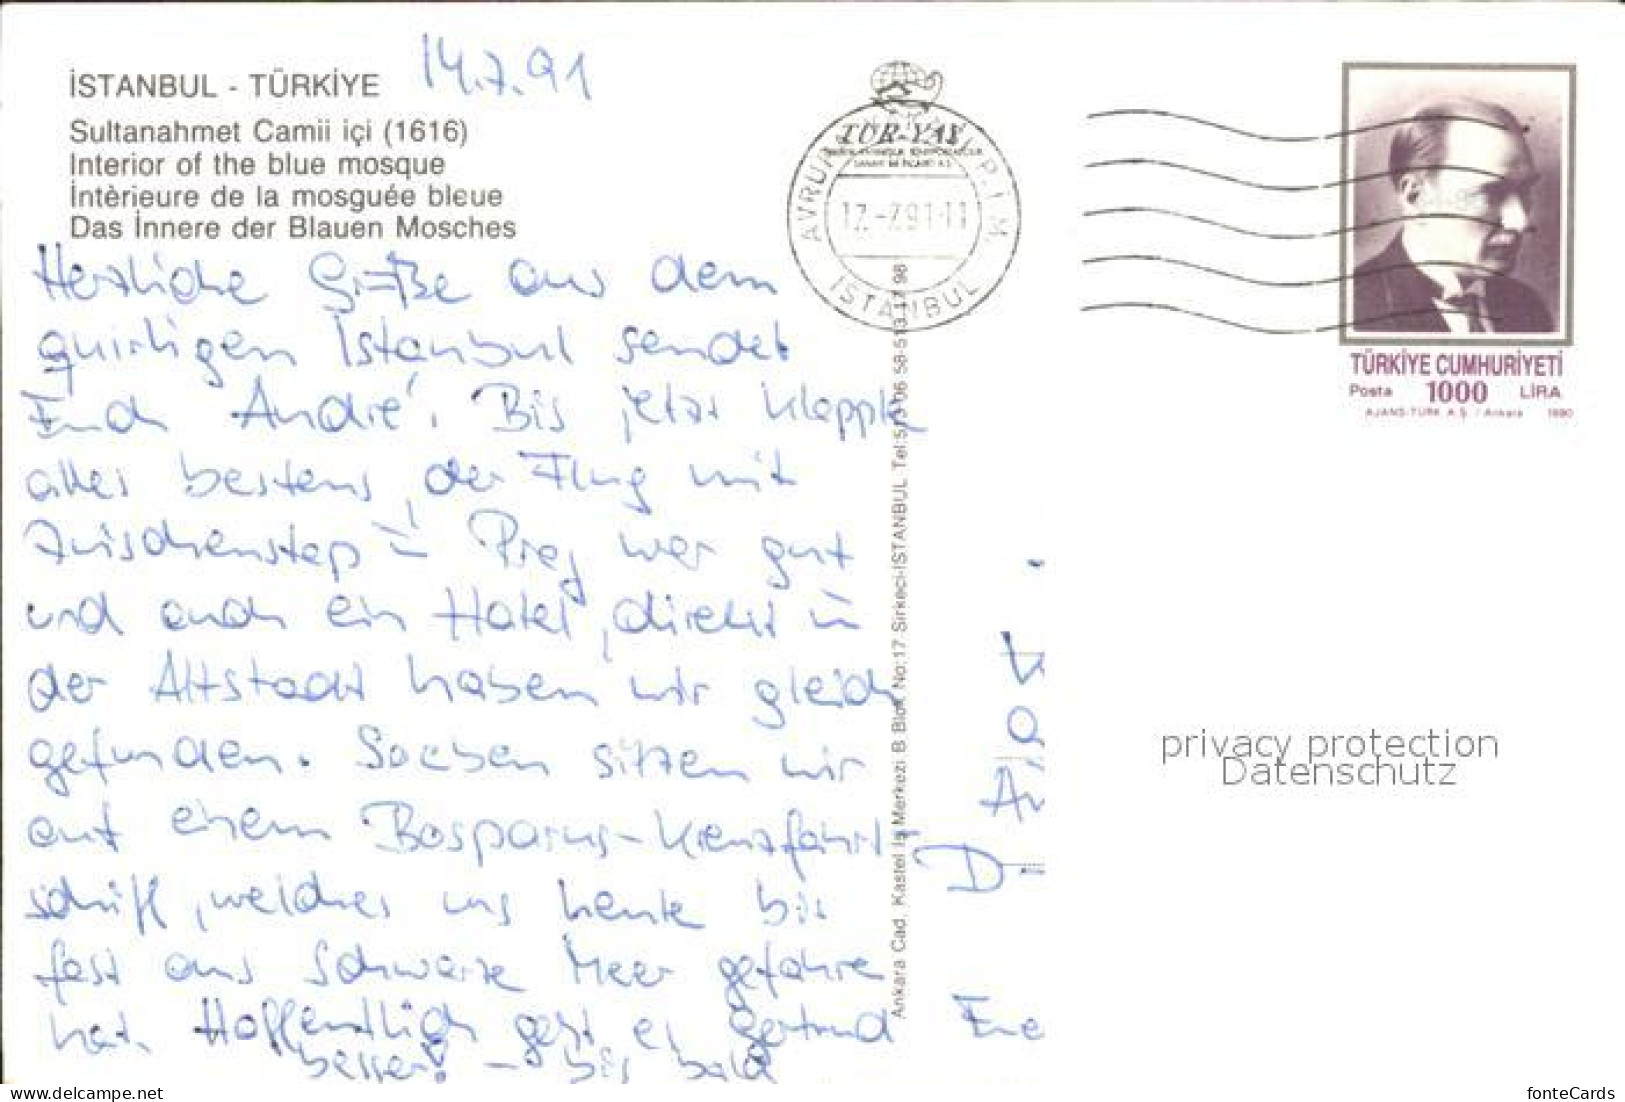 İSTANBUL - TÜRKİYE
14.7.91
Sultanahmet Camii içi (1616)
Interior of the blue mosque
İntèrieure de la mosguée bleue
Das İnnere der Blauen Mosches
Herzliche Grüße aus dem
quirligen Istanbul sendet
Euch André. Bis jetzt klappte
alles bestens, der Flug mit
Zwischenstop in Prag war gut
und auch ein Hotel, direkt in
der Altstadt haben wir gleich
gefunden. Soeben sitzen wir
auf einem Bosporus-Kreuzfahrt-
schiff, welches uns heute bis
fast ans Schwarze Meer gefahren
hat. Hoffentlich geht es Gertrud
besser! - bis bald
TUR-YAY
AVRUPA P.I.M.
17.-7.91-11
İSTANBUL
Ankara Cad. Kastel İş Merkezi B Blok No:17 Sirkeci-İSTANBUL Tel:513 06 58-513 17 98
D
TÜRKİYE CUMHURİYETİ
Posta 1000 LİRA
AJANS-TÜRK A.Ş. / Ankara 1990
privacy protection
Datenschutz
Delcampe.net
fonteCards